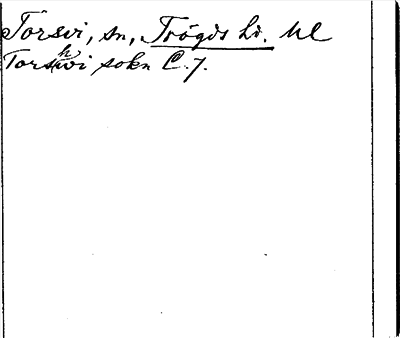 Torsvi, sn, Trögds hd. Ul
Torshwi sokn C. 7.